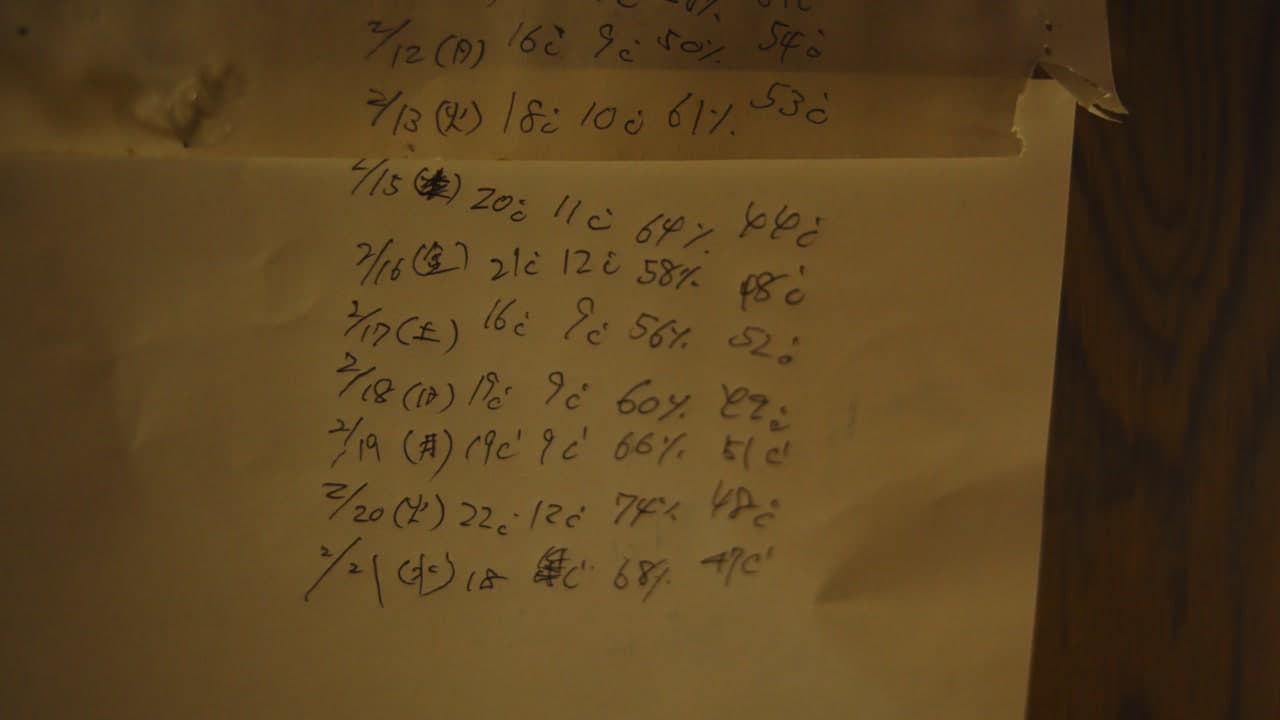 2/12(月) 16℃ 9℃ 50% 54℃
2/13(火) 18℃ 10℃ 61% 53℃
2/15() 20℃ 11℃ 64% 44℃
2/16(金) 21℃ 12℃ 58% 48℃
2/17(土) 16℃ 9℃ 56% 52℃
2/18(日) 19℃ 9℃ 60% ℃
2/19(月) 19℃ 9℃ 66% 51℃
2/20(火) 22℃ 12℃ 74% 48℃
2/21(水) 18 ℃ 68% 47℃